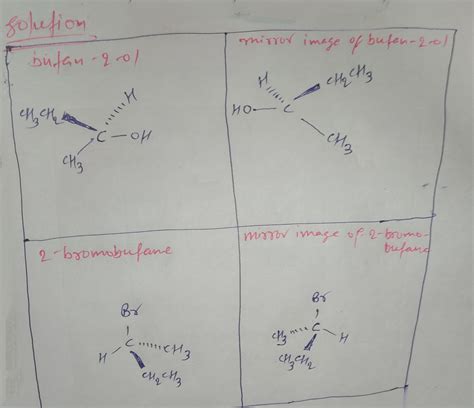 Solution
butan-2-ol
H
CH3CH2
C-OH
CH3
mirror image of butan-2-ol
H
CH2CH3
HO-C
CH3
2-bromobutane
Br
H C CH3
CH2CH3
mirror image of 2-bromo-
butane
Br
CH3 C H
CH3CH2